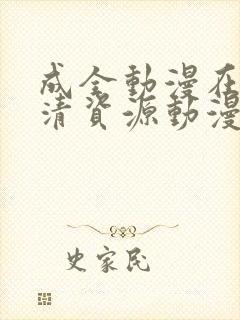 成全動漫在
清資源動漫
史家民